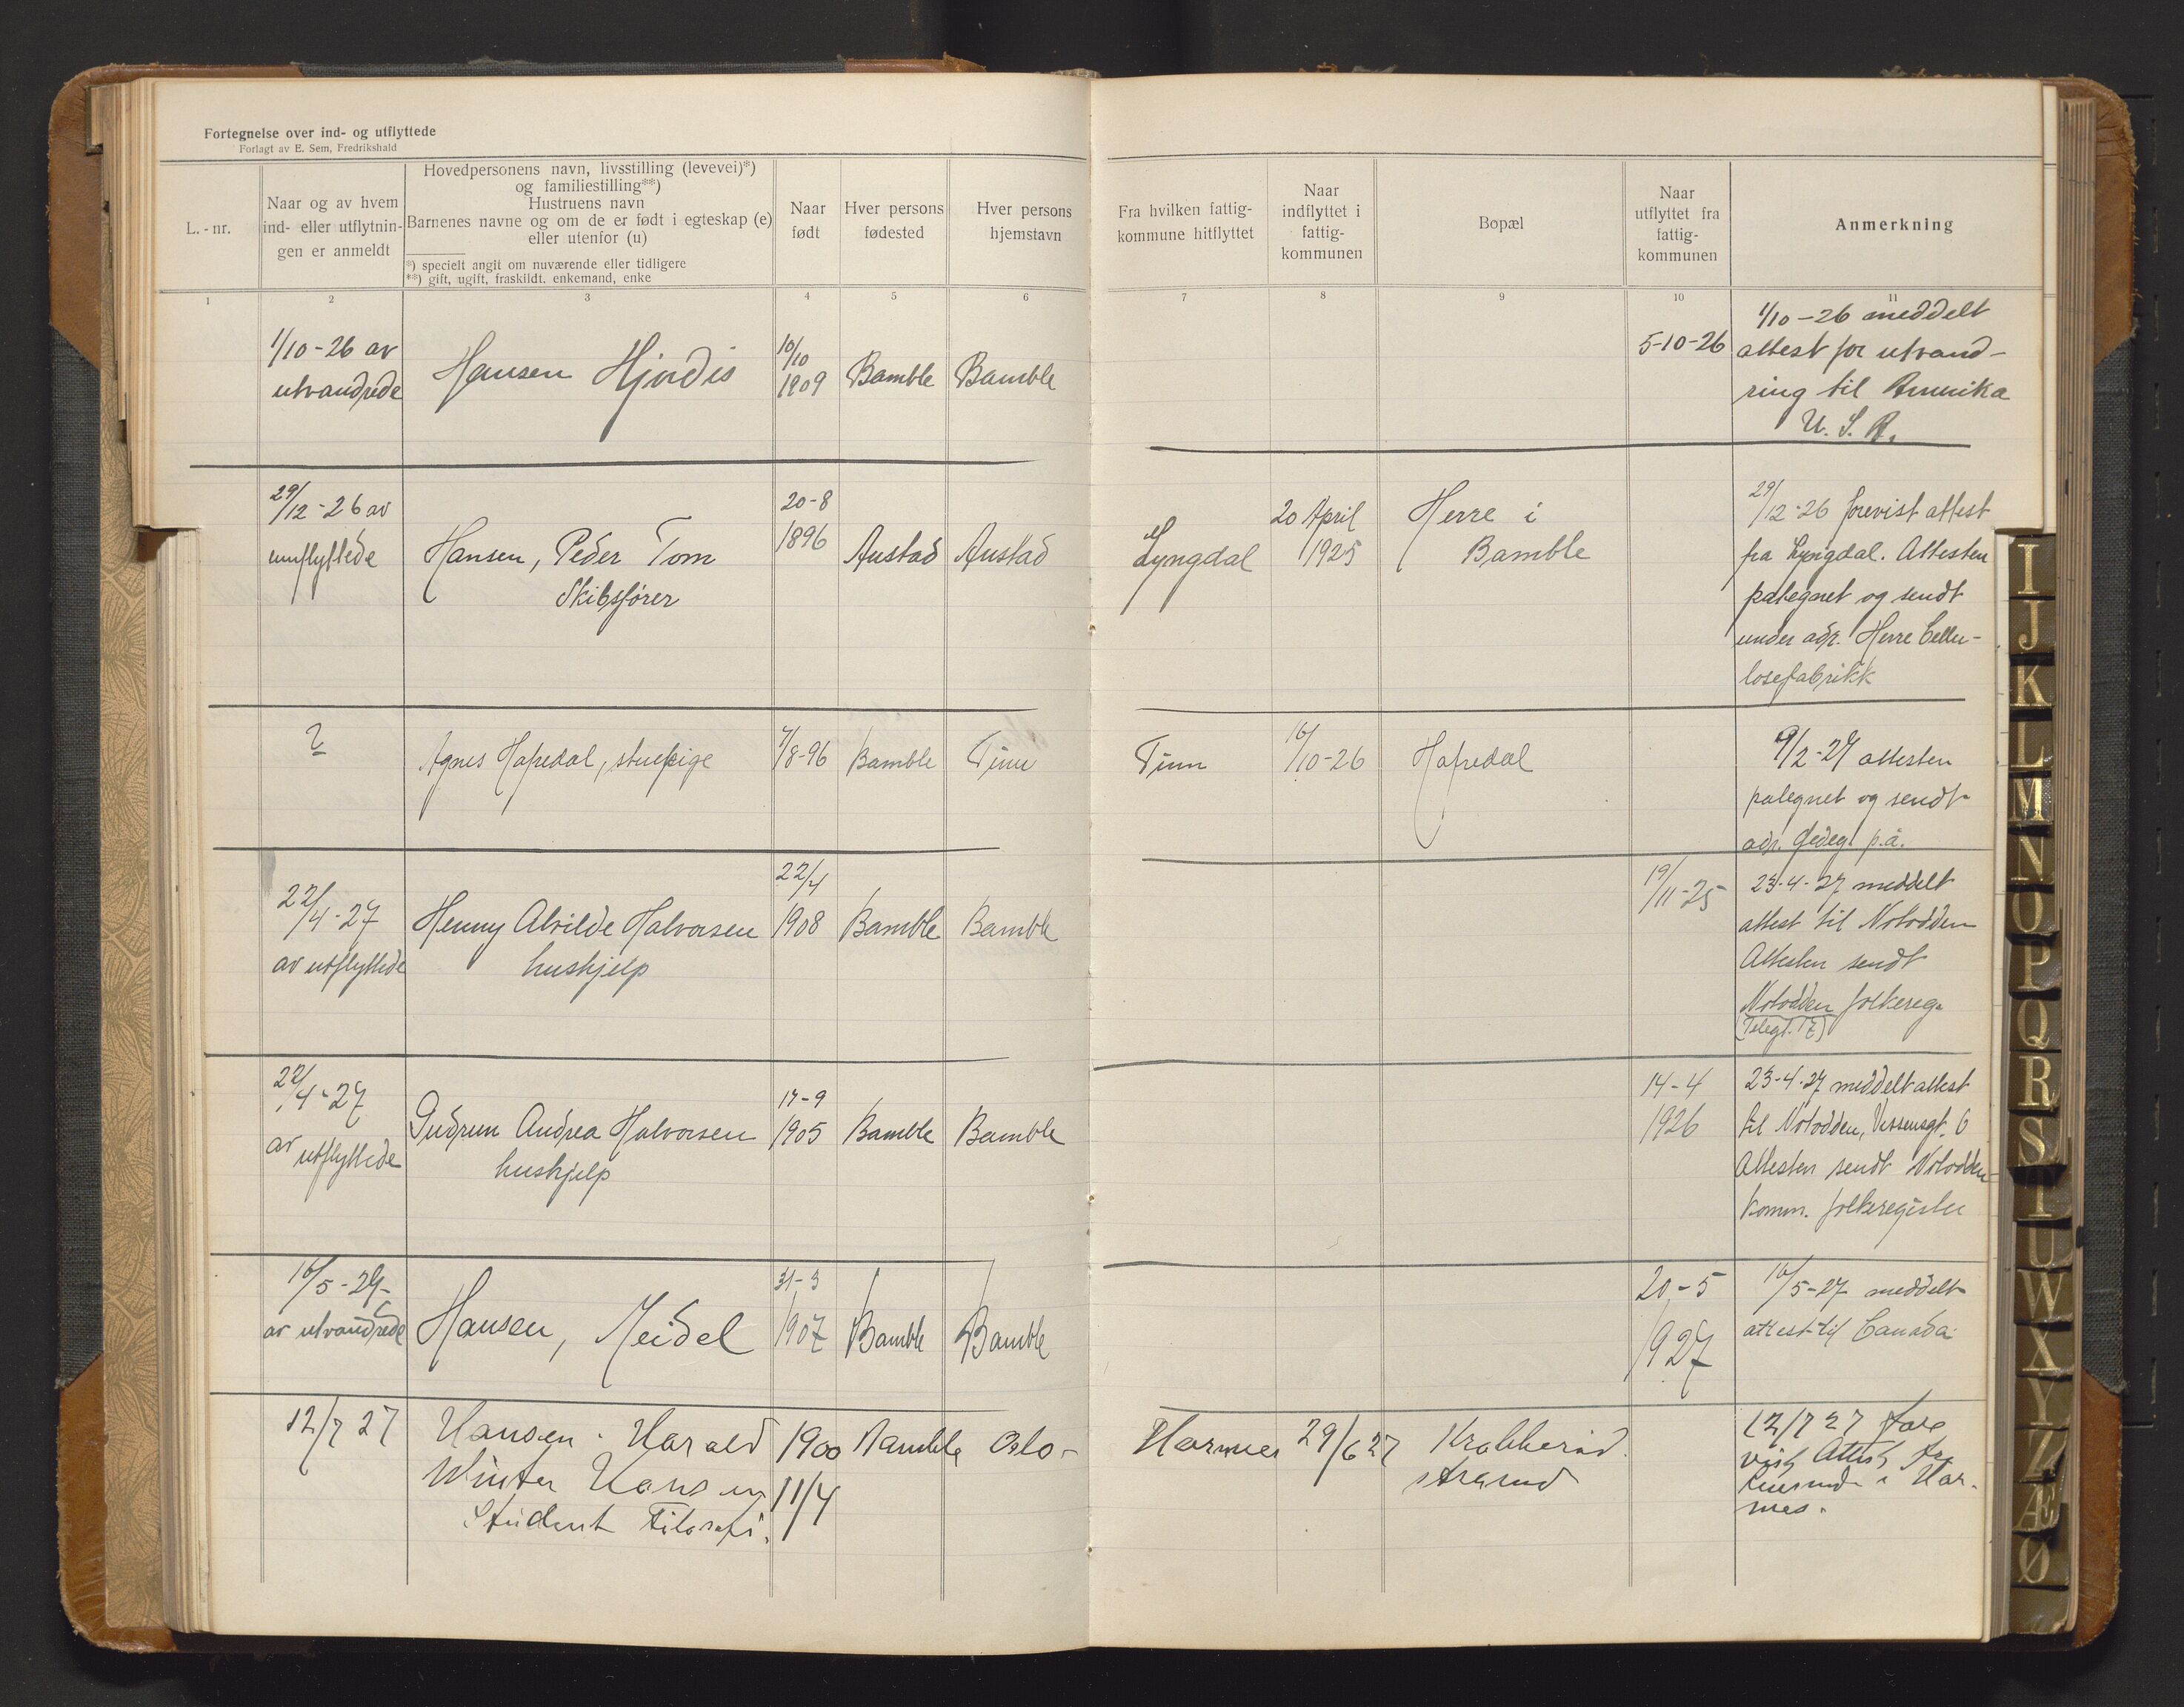 Fortegnelse over ind- og utflyttede
Forlagt av E. Sem, Fredrikshald
L.-nr.
Naar og av hvem
ind- eller utflytnin-
gen er anmeldt
Hovedpersonens navn, livsstilling (levevei)*)
og familiestilling**)
Hustruens navn
Barnenes navne og om de er født i egteskap (e)
eller utenfor (u)
*) specielt angit om nuværende eller tidligere
**) gift, ugift, fraskildt. enkemand, enke
Naar
født
Hver persons
fødested
Hver persons
hjemstavn
Fra hvilken fattig-
kommune hitflyttet
Naar
indflyttet i
fattig-
kommunen
Bopæl
Naar
utflyttet fra
fattig-
kommunen
Anmerkning
1 2 3 4 5 6 7 8 9 10 11
1/10-26 av
utvandrede
Hansen Hjørdis
10/10
1909
Bamble
Bamble
5-10-26
1/10-26 meddelt
attest for utvand-
ring til Amerika
U. S. A.
29/12-26 av
innflyttede
Hansen, Peder Tom
Skibsfører
20-8
1896
Austad
Austad
Lyngdal
20 April
1925
Herre i
Bamble
29/12-26 forevist attest
fra Lyngdal. Attesten
påtegnet og sendt
under adr. Herre Cellu-
losefabrikk
?
Agnes Hafredal, stuepige
7/8-96
Bamble
Tinn
Tinn
16/10-26
Hafredal
9/2-27 attesten
påtegnet og sendt
adr. p.å.
22/4-27
av utflyttede
Henny Alvilde Halvorsen
hushjelp
22/4
1908
Bamble
Bamble
19/11-25
23-4-27 meddelt
attest til Notodden
Attesten sendt
Notodden folkereg.
(Telegt. 17)
22/4-27
av utflyttede
Gudrun Andrea Halvorsen
hushjelp
17-9
1905
Bamble
Bamble
14-4
1926
23-4-27 meddelt attest
til Notodden, 6
Attesten sendt Notodden
komm. folkeregister
16/5-27
av utvandrede
Hansen, Meidel
31-3
1907
Bamble
Bamble
20-5
1927
16/5-27 meddelt
attest til Canada
12/7 27
Hansen. Harald
Winter Hansen
Student Filosofi.
1900
11/4
Bamble
Oslo-
29/6 27
Krabberød
strand
12/7 27 fore
vist Attest fra
i
I
J
K
L
M
N
O
P
Q
R
S
T
U
W
X
Y
Z
Æ
Ø